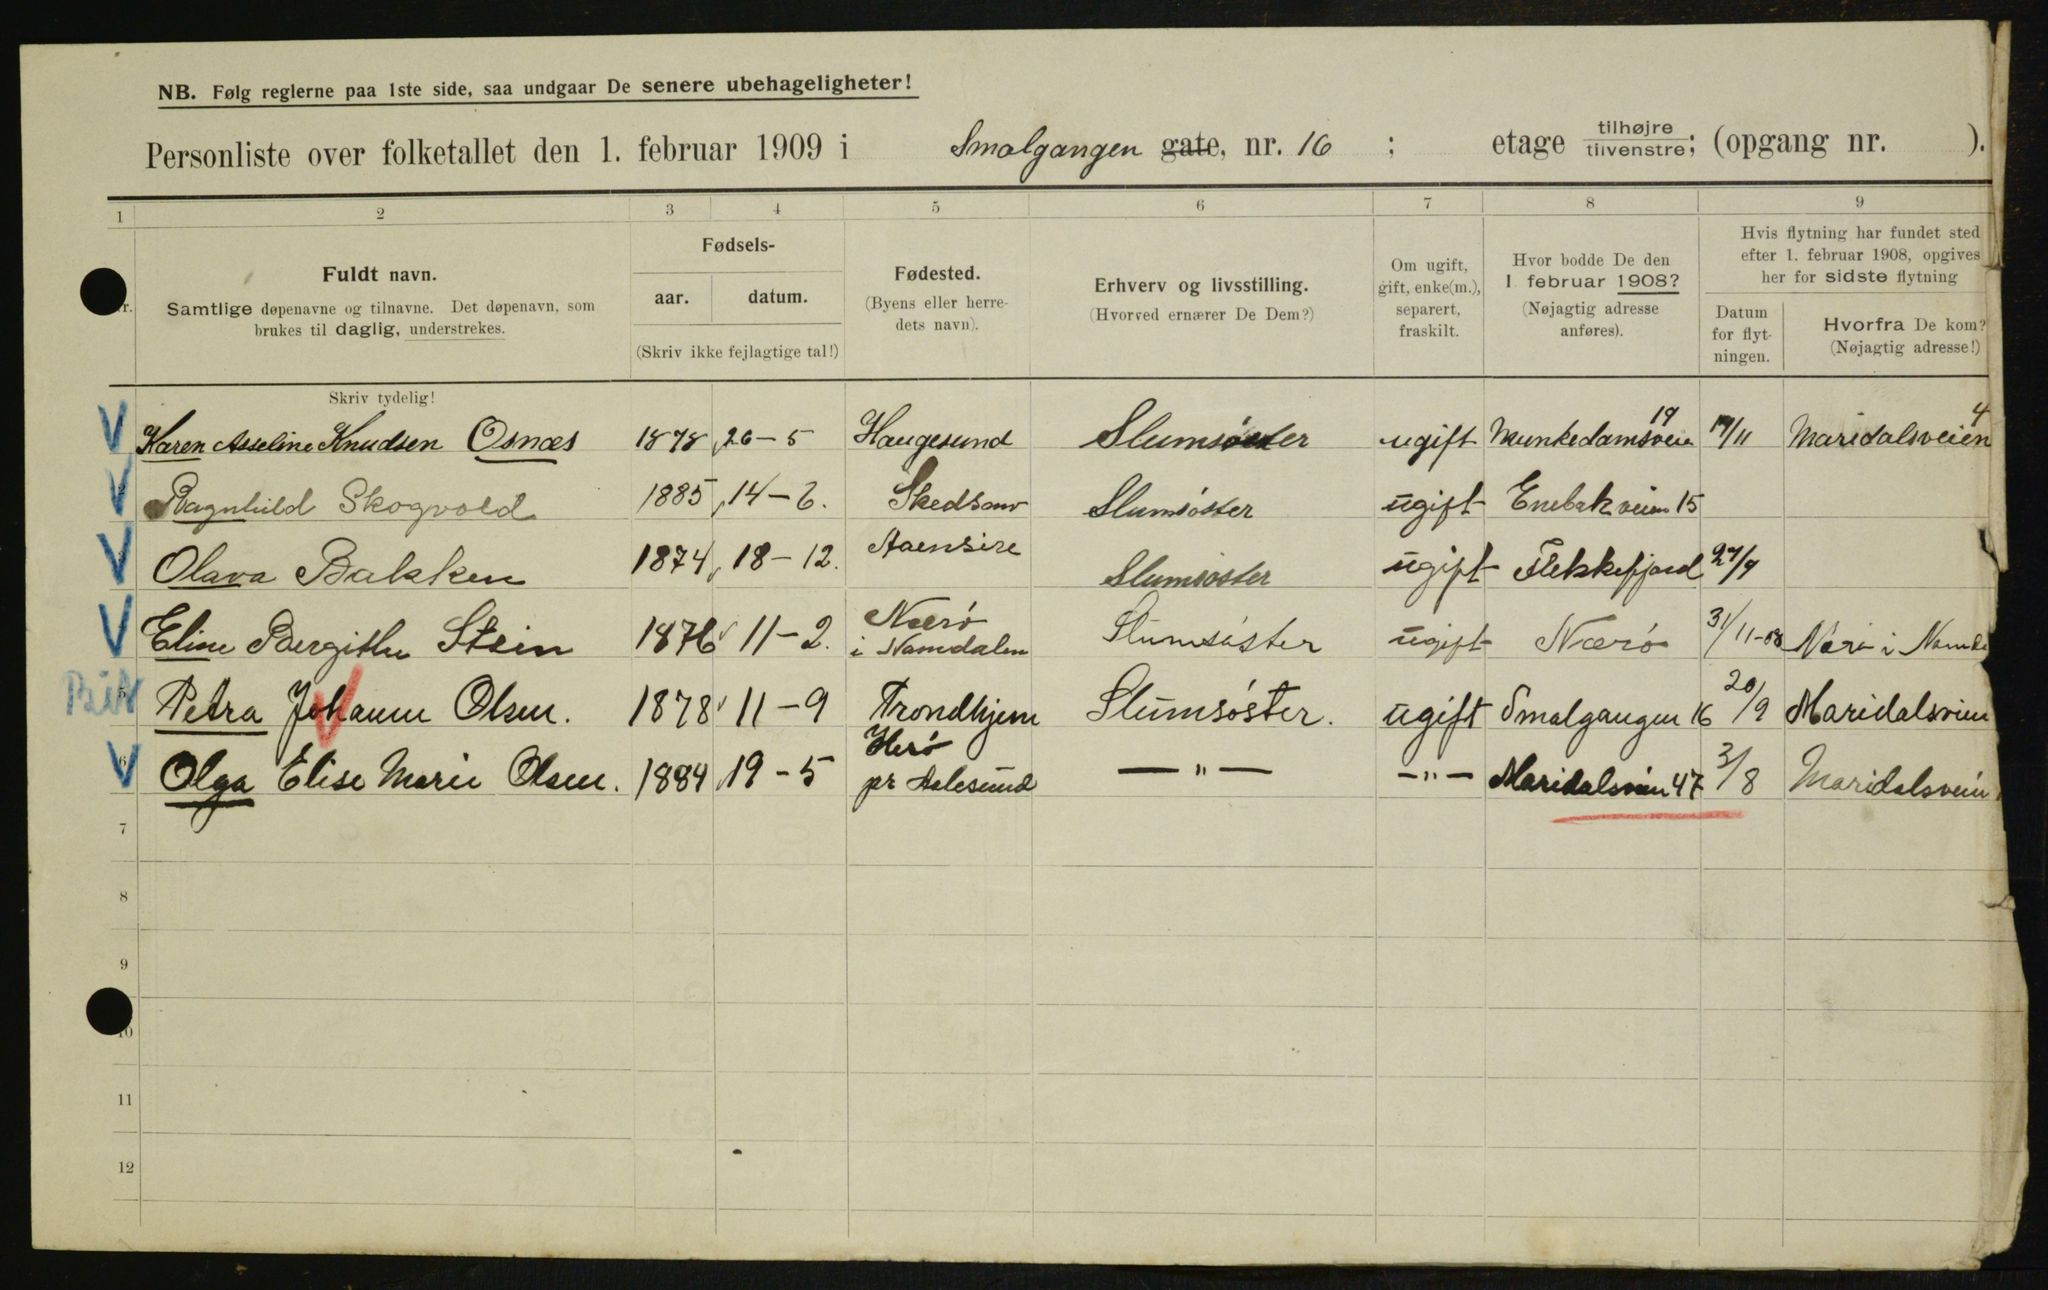 NB. Følg reglerne paa 1ste side, saa undgaar De senere ubehageligheter!
Personliste over folketallet den 1. februar 1909 i Smalgangen gate, nr. 16 ; etage tilhøjre tilvenstre; (opgang nr. ).
1 2 3 4 5 6 7 8 9
Fuldt navn.
Samtlige døpenavne og tilnavne. Det døpenavn, som
brukes til daglig, understrekes.
Skriv tydelig!
Fødsels-
aar. datum.
(Skriv ikke fejlagtige tal!)
Fødested.
(Byens eller herre-
dets navn).
Erhverv og livsstilling.
(Hvorved ernærer De Dem?)
Om ugift,
gift, enke(m.),
separert,
fraskilt.
Hvor bodde De den
1 februar 1908?
(Nøjagtig adresse
anføres).
Hvis flytning har fundet sted
efter 1. februar 1908, opgives
her for sidste flytning
Datum
for flyt-
ningen.
Hvorfra De kom?
(Nøjagtig adresse!)
Karen Asseline Knudsen Osnæs 1878 26-5 Haugesund Slumsøster ugift Munkedamsveien 19 /11 Maridalsveien 4
2 Ragnhild Skogvold 1885 14-6. Skedsmo Slumsøster ugift Enebakveien 15
3 Olava Bakken 1874 18-12. Aaensire Slumsøster ugift Flekkefjord 27/9
Eline Bergithe Stein 1876 11-2. Nærø i Namdalen Slumsøster ugift Nærø 31/11-08 Nærø i Namda
5 Petra Johanne Olsen. 1878 11-9 Trondhjem Slumsøster. ugift Smalgangen 16 20/9 Maridalsveien
6 Olga Elise Marie Olsen. 1884 19-5 Herø pr Aalesund —"— —"— Maridalsveien 47 3/8 Maridalsveien
7
8
9
10
11
12